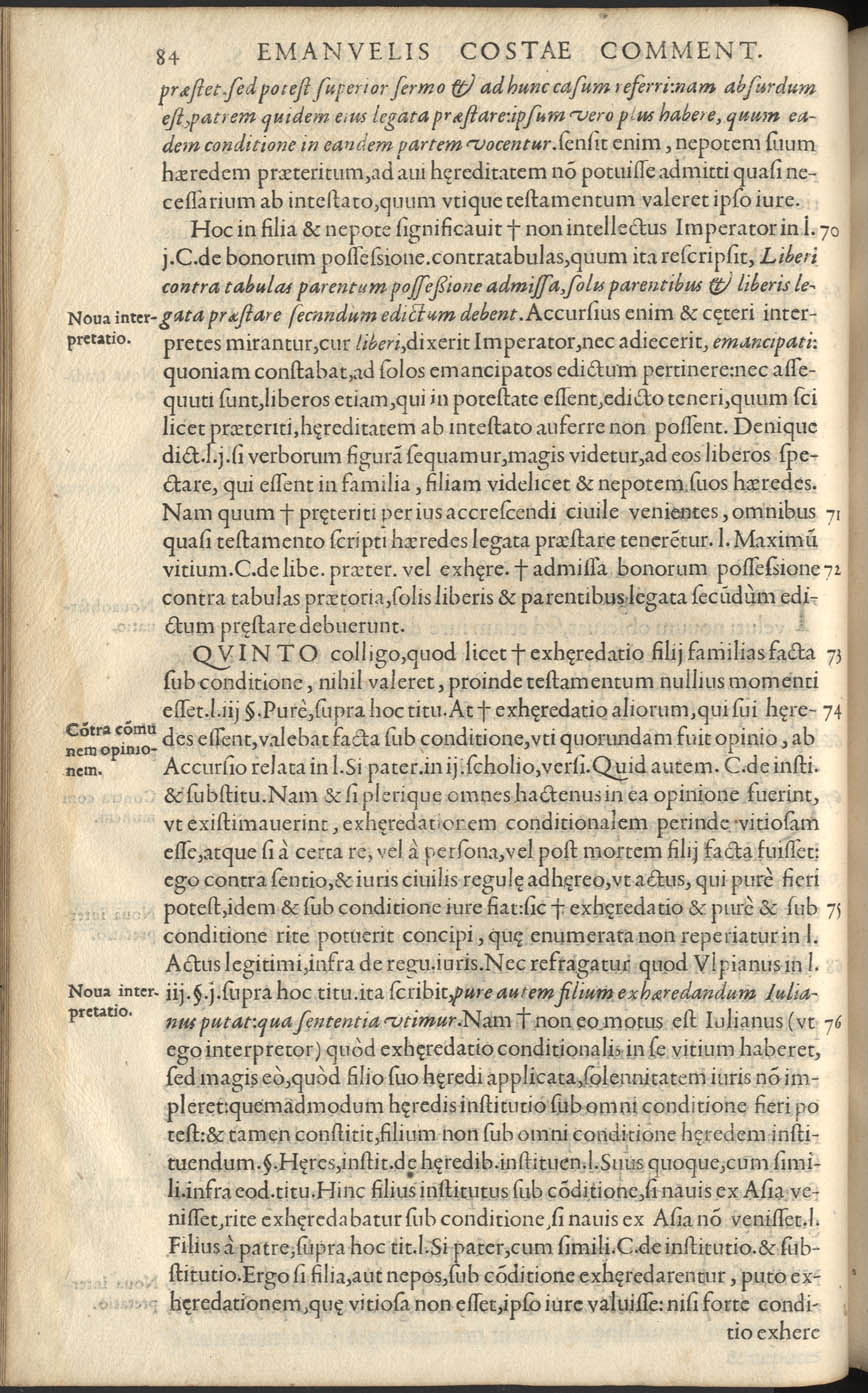 84 EMANVELIS COSTAE COMMENT.
præstet.sed potest superior sermo & ad hunc casum referri:nam absurdum
est,patrem quidem eius legata præstare:ipsum vero plus habere, quum ea-
dem conditione in eandem partem vocentur.sensit enim, nepotem suum
hæredem præteritum,ad aui hęreditatem nõ potuisse admitti quasi ne-
cessarium ab intestato,quum vtique testamentum valeret ipso iure.
Hoc in filia & nepote significauit † non intellectus Imperator in l. 70
j.C.de bonorum possessione.contratabulas,quum ita rescripsit, Liberi
contra tabulas parentum possessione admissa,solis parentibus & liberis le-
Noua inter- gata præstare secundum edictum debent.Accursius enim & cęteri inter-
pretatio. pretes mirantur,cur liberi,dixerit Imperator,nec adiecerit, emancipati:
quoniam constabat,ad solos emancipatos edictum pertinere:nec asse-
quuti sunt,liberos etiam,qui in potestate essent,edicto teneri,quum sci
licet præteriti,hęreditatem ab intestato auferre non possent. Denique
dict.l.j.si verborum figurã sequamur,magis videtur,ad eos liberos spe-
ctare, qui essent in familia, filiam videlicet & nepotem,suos hæredes.
Nam quum † pręteriti per ius accrescendi ciuile venientes, omnibus 71
quasi testamento scripti hæredes legata præstare tenerẽtur. l. Maximũ
vitium.C.de libe. præter. vel exhęre. † admissa bonorum possessione 72
contra tabulas prætoria,solis liberis & parentibus legata secũdùm edi-
ctum pręstare debuerunt.
QVINTO colligo,quod licet † exhęredatio filij familias facta 73
sub conditione, nihil valeret, proinde testamentum nullius momenti
esset.l.iij §.Purè,supra hoc titu. At † exhęredatio aliorum,qui sui hęre- 74
Cõtra cõmu des essent,valebat facta sub conditione,vti quorundam fuit opinio, ab
nem opinio- Accursio relata in l.Si pater.in ij.scholio,versi.Quid autem. C.de insti.
nem. & substitu.Nam & si plerique omnes hactenus in ea opinione fuerint,
vt existimauerint, exhęredationem conditionalem perinde vitiosam
esse,atque si à certa re, vel à persona,vel post mortem filij facta fuisset:
ego contra sentio,& iuris ciuilis regulę adhęreo,vt actus, qui purè fieri
potest,idem & sub conditione iure fiat:sic † exhęredatio & purè & sub 75
conditione rite potuerit concipi, quę enumerata non reperiatur in l.
Actus legitimi,infra de regu.iuris.Nec refragatur quod Vlpianus in l.
Noua inter- iij.§.j.supra hoc titu.ita scribit,pure autem filium exhæredandum Iulia-
pretatio. nus putat:qua sententia vtimur.Nam † non eo motus est Iulianus (vt 76
ego interpretor) quòd exhęredatio conditionalis in se vitium haberet,
sed magis eò,quòd filio suo hęredi applicata,solennitatem iuris nõ im-
pleret:quemadmodum hęredis institutio sub omni conditione fieri po
test:& tamen constitit,filium non sub omni conditione hęredem insti-
tuendum.§.Hęres,instit.de hęredib.instituen.l.Suus quoque,cum simi-
li.infra eod.titu.Hinc filius institutus sub cõditione,si nauis ex Asia ve-
nisset,rite exhęredabatur sub conditione,si nauis ex Asia nõ venisset.l.
Filius à patre,supra hoc tit.l.Si pater,cum simili.C.de institutio.& sub-
stitutio.Ergo si filia,aut nepos,sub cõditione exhęredarentur, puto ex-
hęredationem,quę vitiosa non esset,ipso iure valuisse: nisi forte condi-
tio exhere